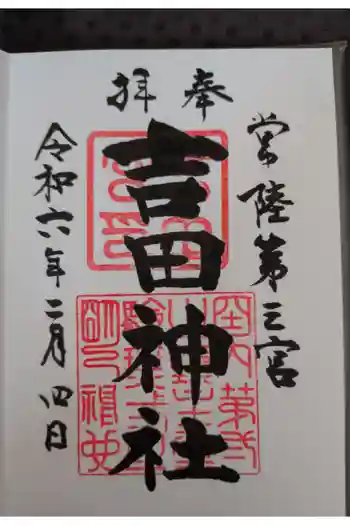 奉拝
常陸第三宮
吉田神社
令和六年二月四日